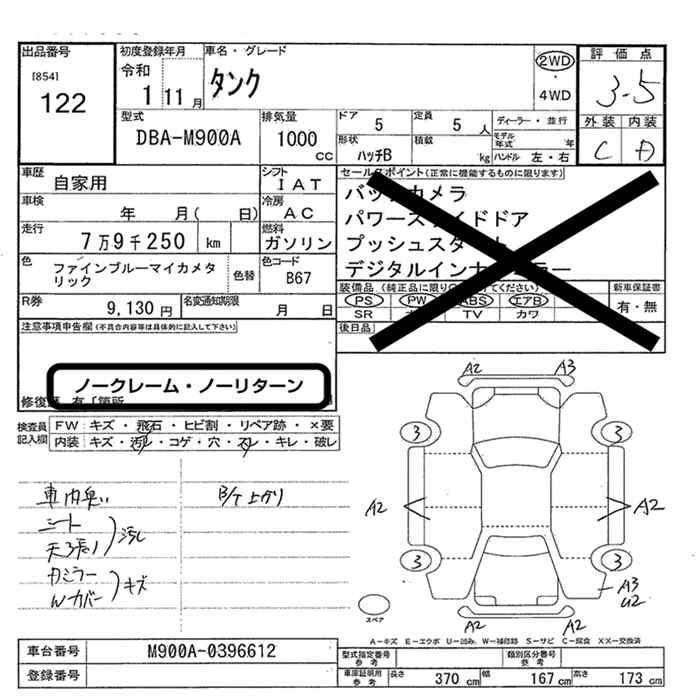 出品番号
[854]
122
初度登録年月
令和
1 11 月
車名・グレード
タンク
2WD
・
4WD
評価点
3.5
外装 内装
C A
型式
DBA-M900A
排気量
1000 cc
ドア
5
定員
5 人
ディーラー・並行
モデル年式 年
形状
ハッチB
積載
kg
ハンドル 左・右
車歴
自家用
シフト
IAT
車検
年 月( 日)
冷房
AC
走行
7万9千250 km
燃料
ガソリン
色
ファインブルーマイカメタリック
色替
色コード
B67
R券
9,130 円
名変通知期限
月 日
セールスポイント(正常に機能するものに限ります)
バックカメラ
パワースライドドア
プッシュスタート
デジタルインナーミラー
装備品
PS PW ABS エアB
SR TV カワ
新車保証書
有・無
後日品
注意事項申告欄(不具合内容等は具体的に記入して下さい)
ノークレーム・ノーリターン
検査員記入欄
FW:キズ・飛石・ヒビ割・リペア跡・×要
内装:キズ・汚れ・コゲ・穴・スレ・キレ・破レ
車内臭い
シート
天張り
汚れ
カミラー
Wカバー
キズ
B/T上がり
A2 A3
3 3
A2 A2
3 3
A3
U2
A2 A2
スペア
A-キズ E-エクボ U-凹み W-補修跡 S-サビ C-腐食 XX-交換済
車台番号
M900A-0396612
登録番号
型式指定番号
参考
類別区分番号
参考
車庫証明用
参考
長さ 370 cm 幅 167 cm 高さ 173 cm